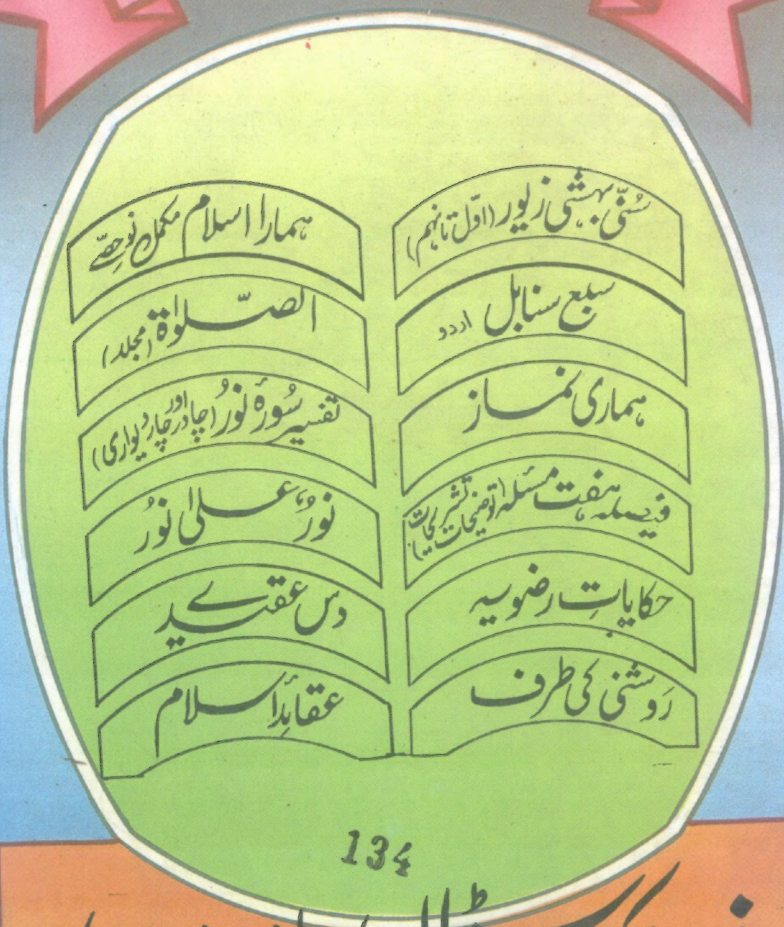 سُنّی بہشتی زیور (اوّل تا نہم)
سبع سنابل اردو
ہماری نماز
فیصلہ ہفت مسئلہ (توضیحات تشریحات)
حکایات رضویہ
رَوشنی کی طرف
ہمارا اسلام مکمل نو حصّے
الصّلوٰۃ (مجلد)
تفسیر سُورۂ نورُ (چادر اور چار دیواری)
نورُ علیٰ نورُ
دس عقیدے
عقایدِ اسلام
134